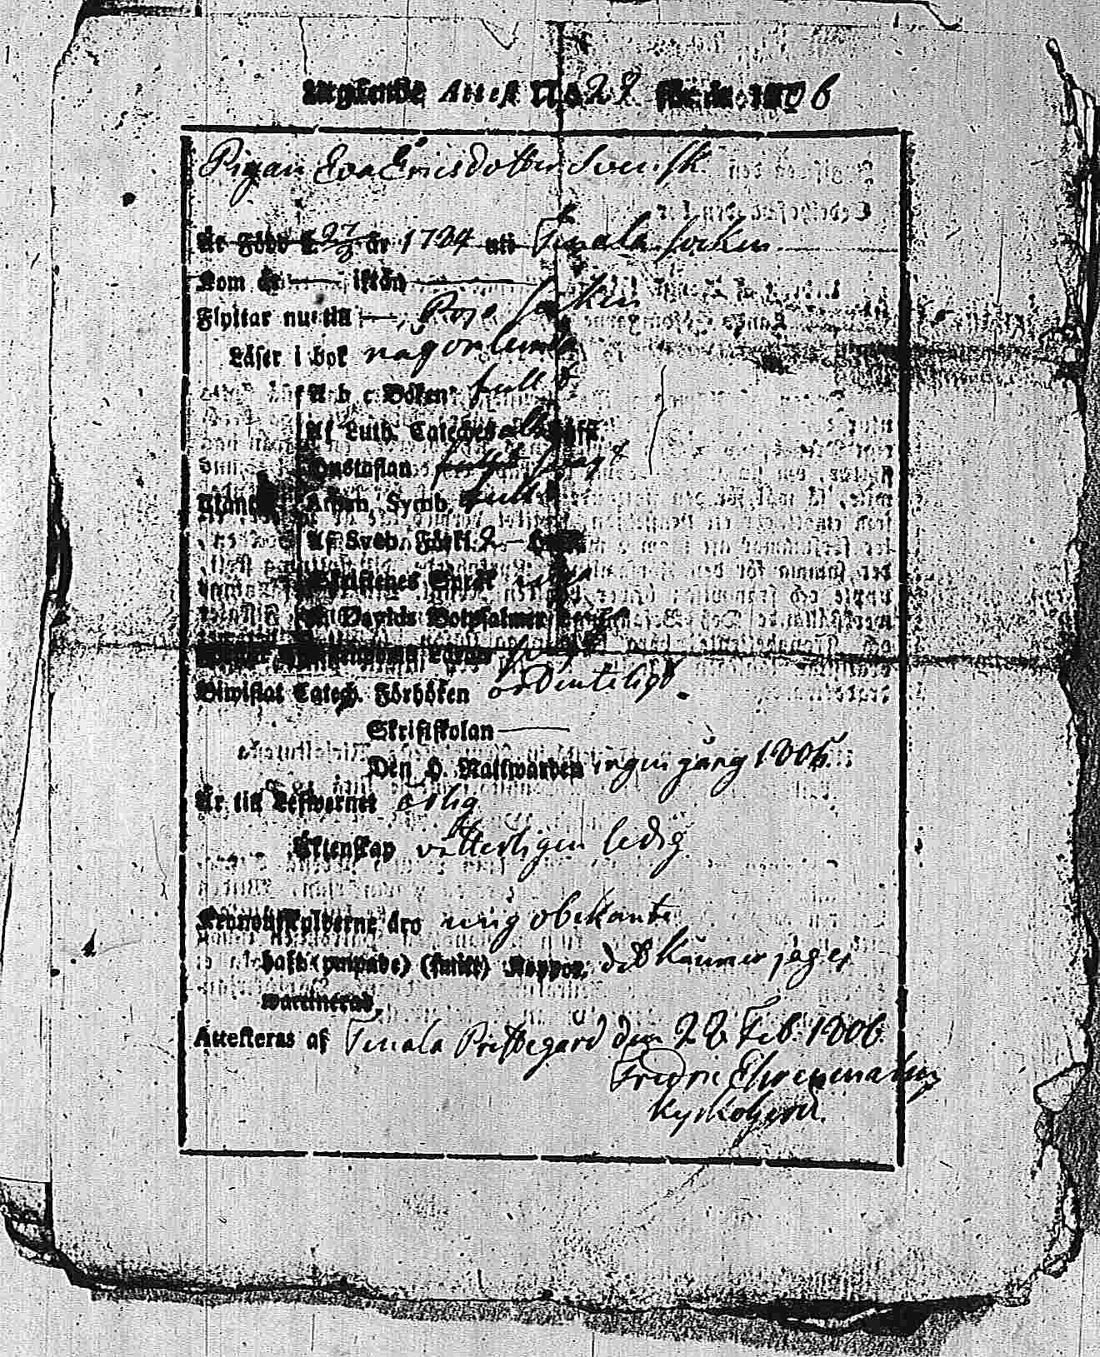 Utgående Attest N:o 28 för år 1806
Pigan Eva Ericsdotter Svensk
Är Född d. 27/3 år 1784 uti Tenala socken
Kom år — ifrån —
Flyttar nu till — Pojo socken
Läser i bok någorlunda
A b c Boken fullt
Af Luth. Cateches
Hustaflan svagt
Athan. Symb. fullt
Af Sveb. Förkl. 2
Skriftenes Språk
Davids Botpsalmer
Biwistat Catech. Förhören ordenteligt.
Skriftskolan —
Den H. Nattwarden ingen gång 1806.
Är till Lefwernet ärlig
Äktenskap vitterligen ledig
Kronoutskylderne äro mig obekante
haft (ympade) (smitt) Koppor, det känner jag ej
waccinerad,
Attesteras af Tenala Prästegård den 28 Feb. 1806.
Fredric Ehrenmalm
Kyrkoherd.